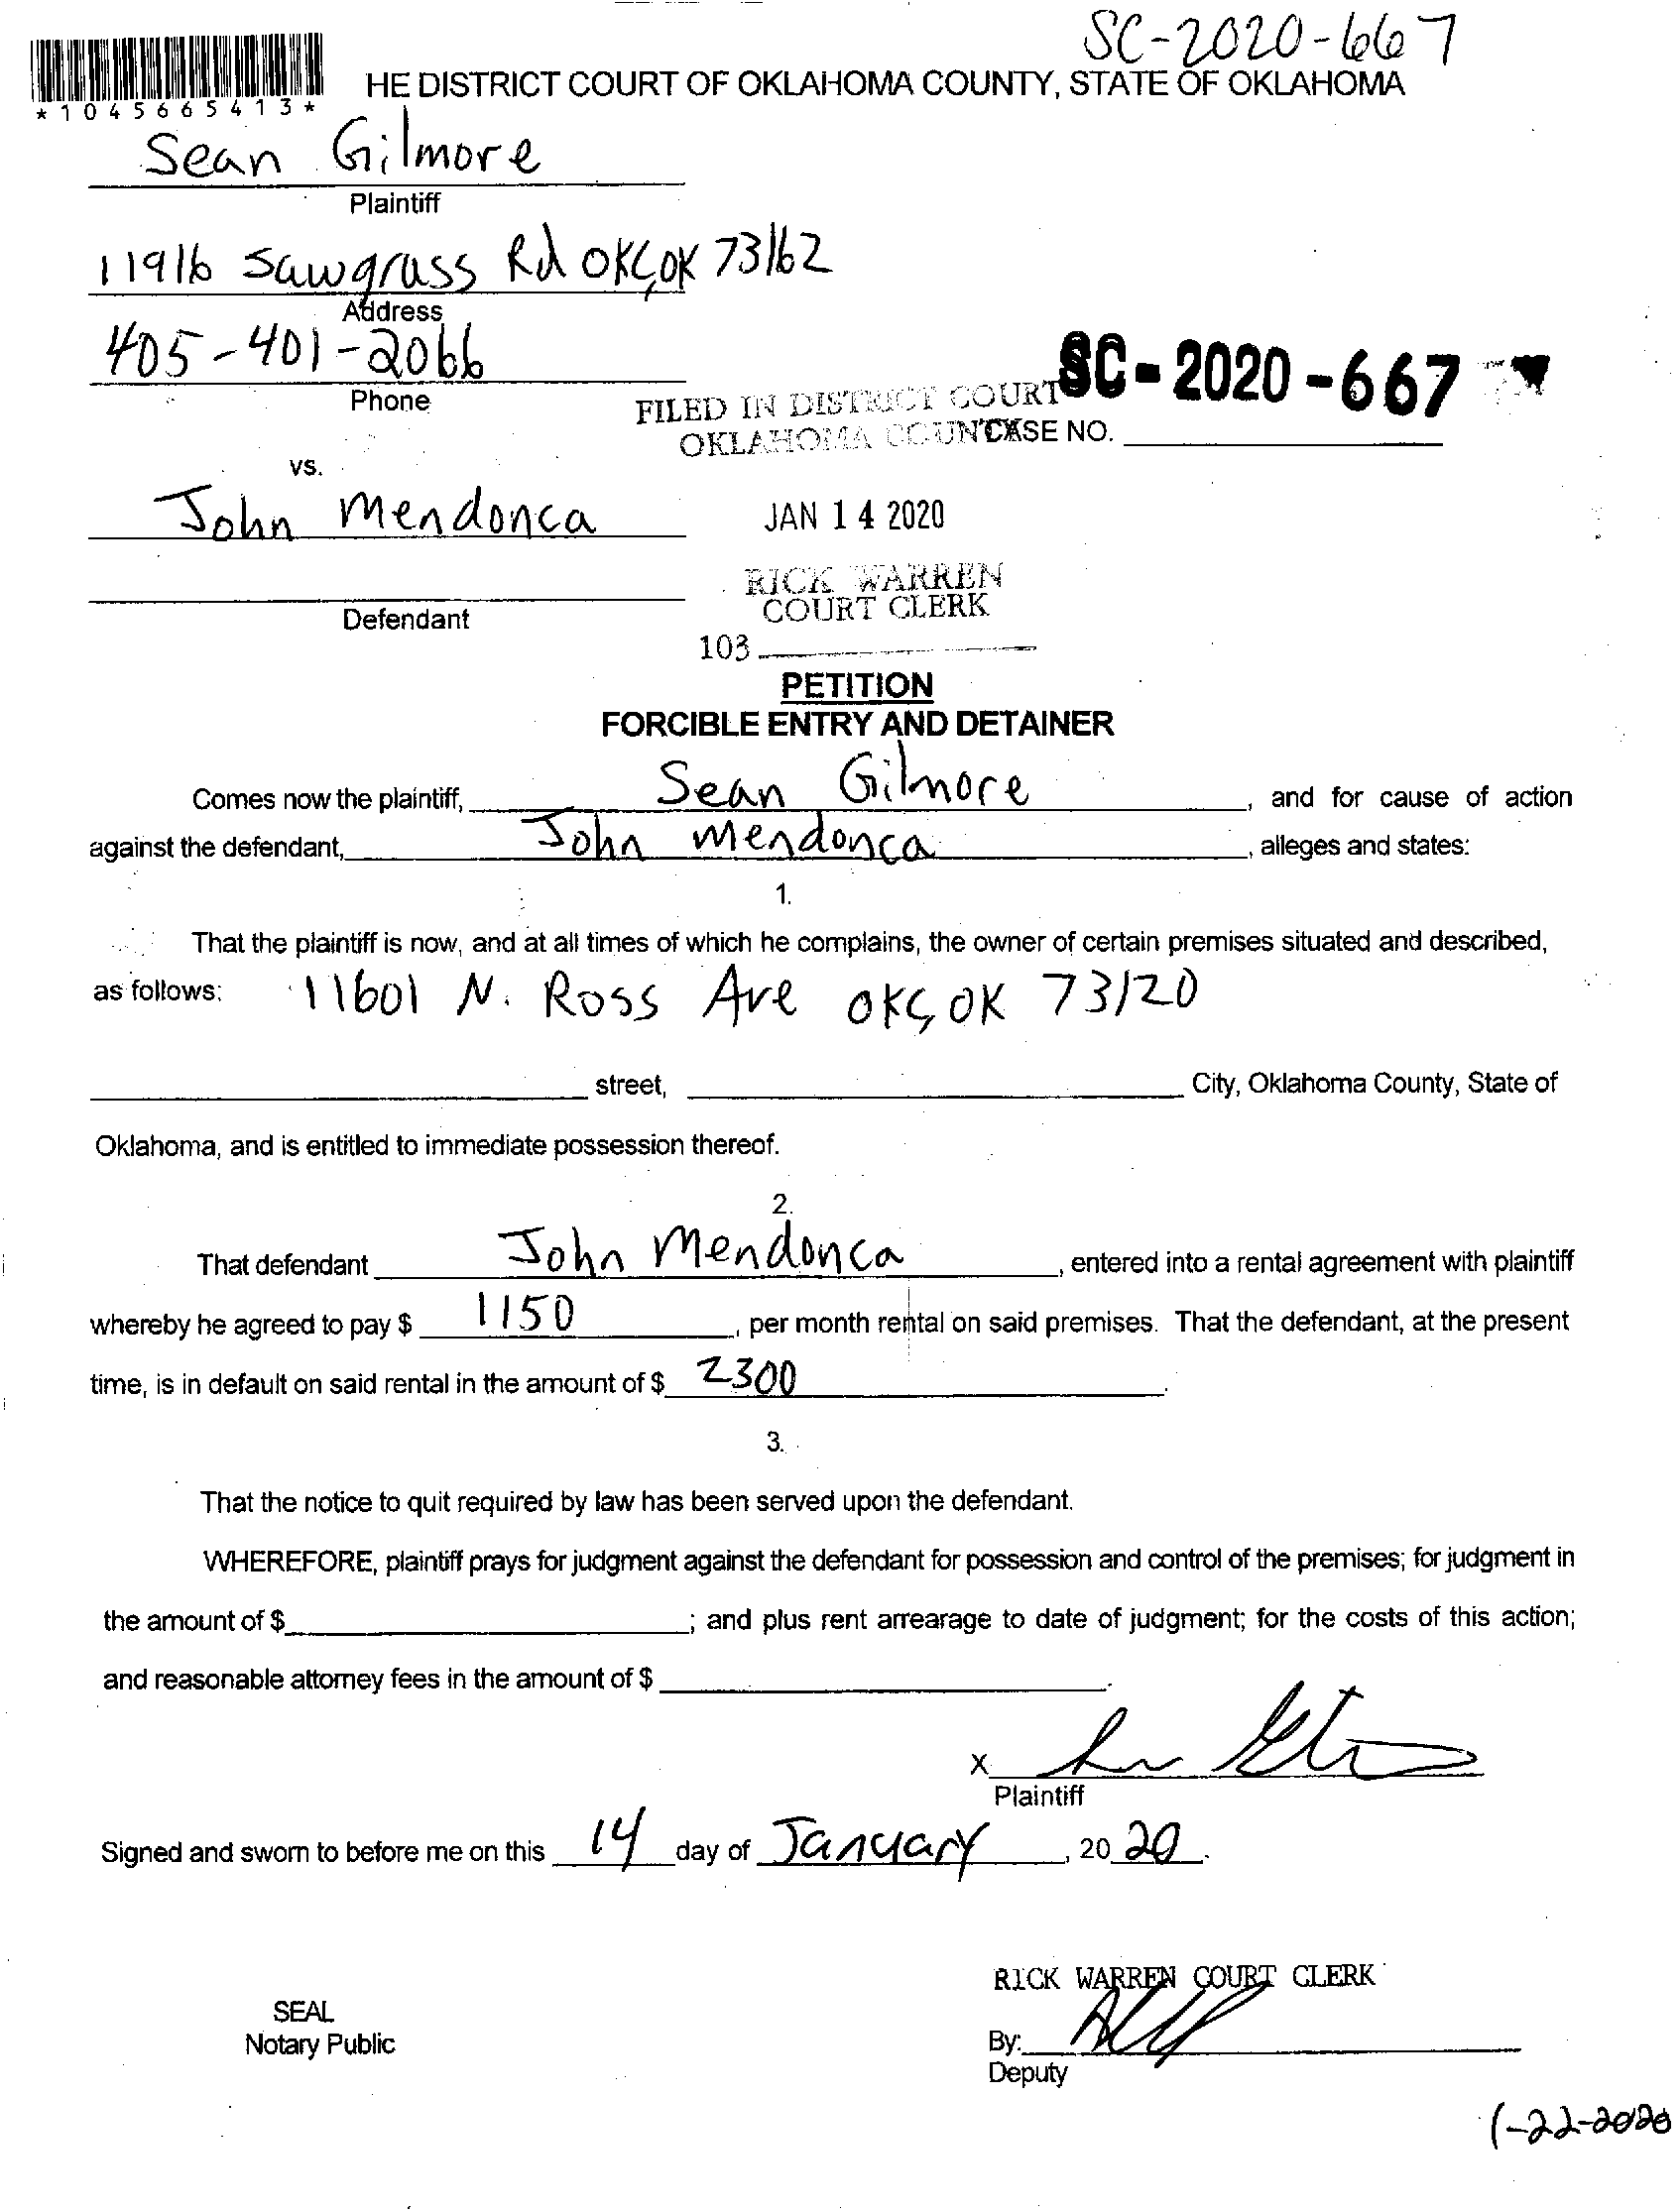 SC-2020-667
HE DISTRICT COURT OF OKLAHOMA COUNTY, STATE OF OKLAHOMA
*1045665413*
Sean Gilmore
Plaintiff
11916 Sawgrass Rd OKC, OK 73162
Address
405-401-2066
Phone
SC-2020-667
FILED IN DISTRICT COURT
OKLAHOMA COUNTY
CASE NO.
vs.
John Mendonca
JAN 14 2020
RICK WARREN
COURT CLERK
Defendant
103
PETITION
FORCIBLE ENTRY AND DETAINER
Comes now the plaintiff, Sean Gilmore, and for cause of action
against the defendant, John Mendonca, alleges and states:
1.
That the plaintiff is now, and at all times of which he complains, the owner of certain premises situated and described,
as follows: 11601 N. Ross Ave OKC, OK 73120
street, City, Oklahoma County, State of
Oklahoma, and is entitled to immediate possession thereof.
2.
That defendant John Mendonca, entered into a rental agreement with plaintiff
whereby he agreed to pay $ 1150, per month rental on said premises. That the defendant, at the present
time, is in default on said rental in the amount of $ 2300.
3.
That the notice to quit required by law has been served upon the defendant.
WHEREFORE, plaintiff prays for judgment against the defendant for possession and control of the premises; for judgment in
the amount of $ ; and plus rent arrearage to date of judgment; for the costs of this action;
and reasonable attorney fees in the amount of $ .
X
Plaintiff
Signed and sworn to before me on this 14 day of January, 20 20.
RICK WARREN COURT CLERK
SEAL
Notary Public
By:
Deputy
1-22-2020